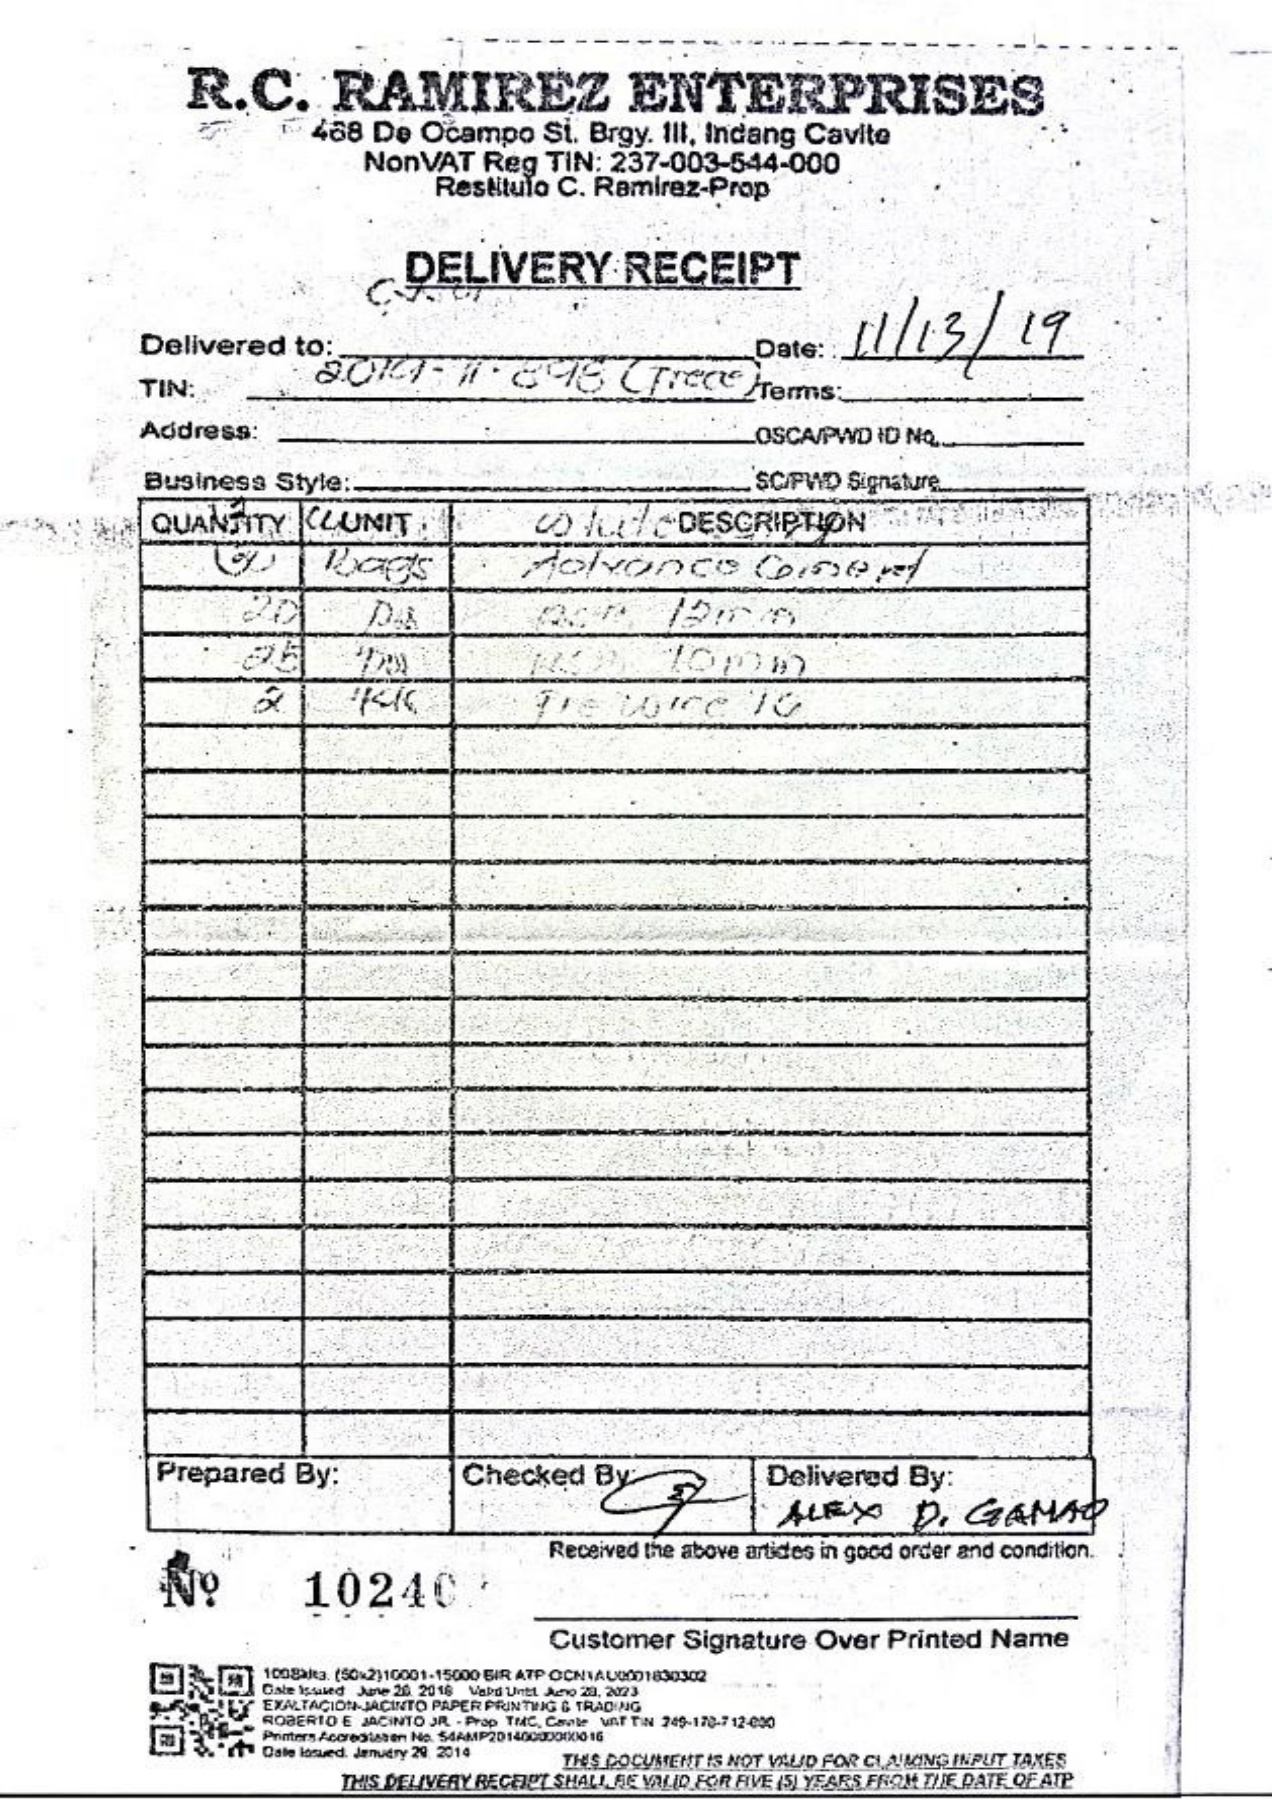 R.C. RAMIREZ ENTERPRISES
468 De Ocampo St. Brgy. III, Indang Cavite
NonVAT Reg TIN: 237-003-544-000
Restituto C. Ramirez-Prop
DELIVERY RECEIPT
Delivered to: Date: 11/13/19
TIN: 2019-11-898 (Trece) Terms:
Address: OSCA/PWD ID No.
Business Style: SC/PWD Signature
QUANTITY UNIT DESCRIPTION
Bags Advance Cement
20 12mm
25 10mm
2 Tie wire 16
Prepared By: Checked By: Delivered By:
ALEX D. GAMAO
Received the above articles in good order and condition.
Nº 10240
Customer Signature Over Printed Name
100Bklts. (50x2)10001-15000 BIR ATP OCN1AU0001830302
Date Issued June 28, 2018 Valid Until June 28, 2023
EXALTACION-JACINTO PAPER PRINTING & TRADING
ROBERTO E. JACINTO JR. - Prop TMC, Cavite VAT TIN 249-178-712-000
Printers Accreditation No. 54AMP20140000000016
Date Issued: January 29, 2014
THIS DOCUMENT IS NOT VALID FOR CLAIMING INPUT TAXES
THIS DELIVERY RECEIPT SHALL BE VALID FOR FIVE (5) YEARS FROM THE DATE OF ATP